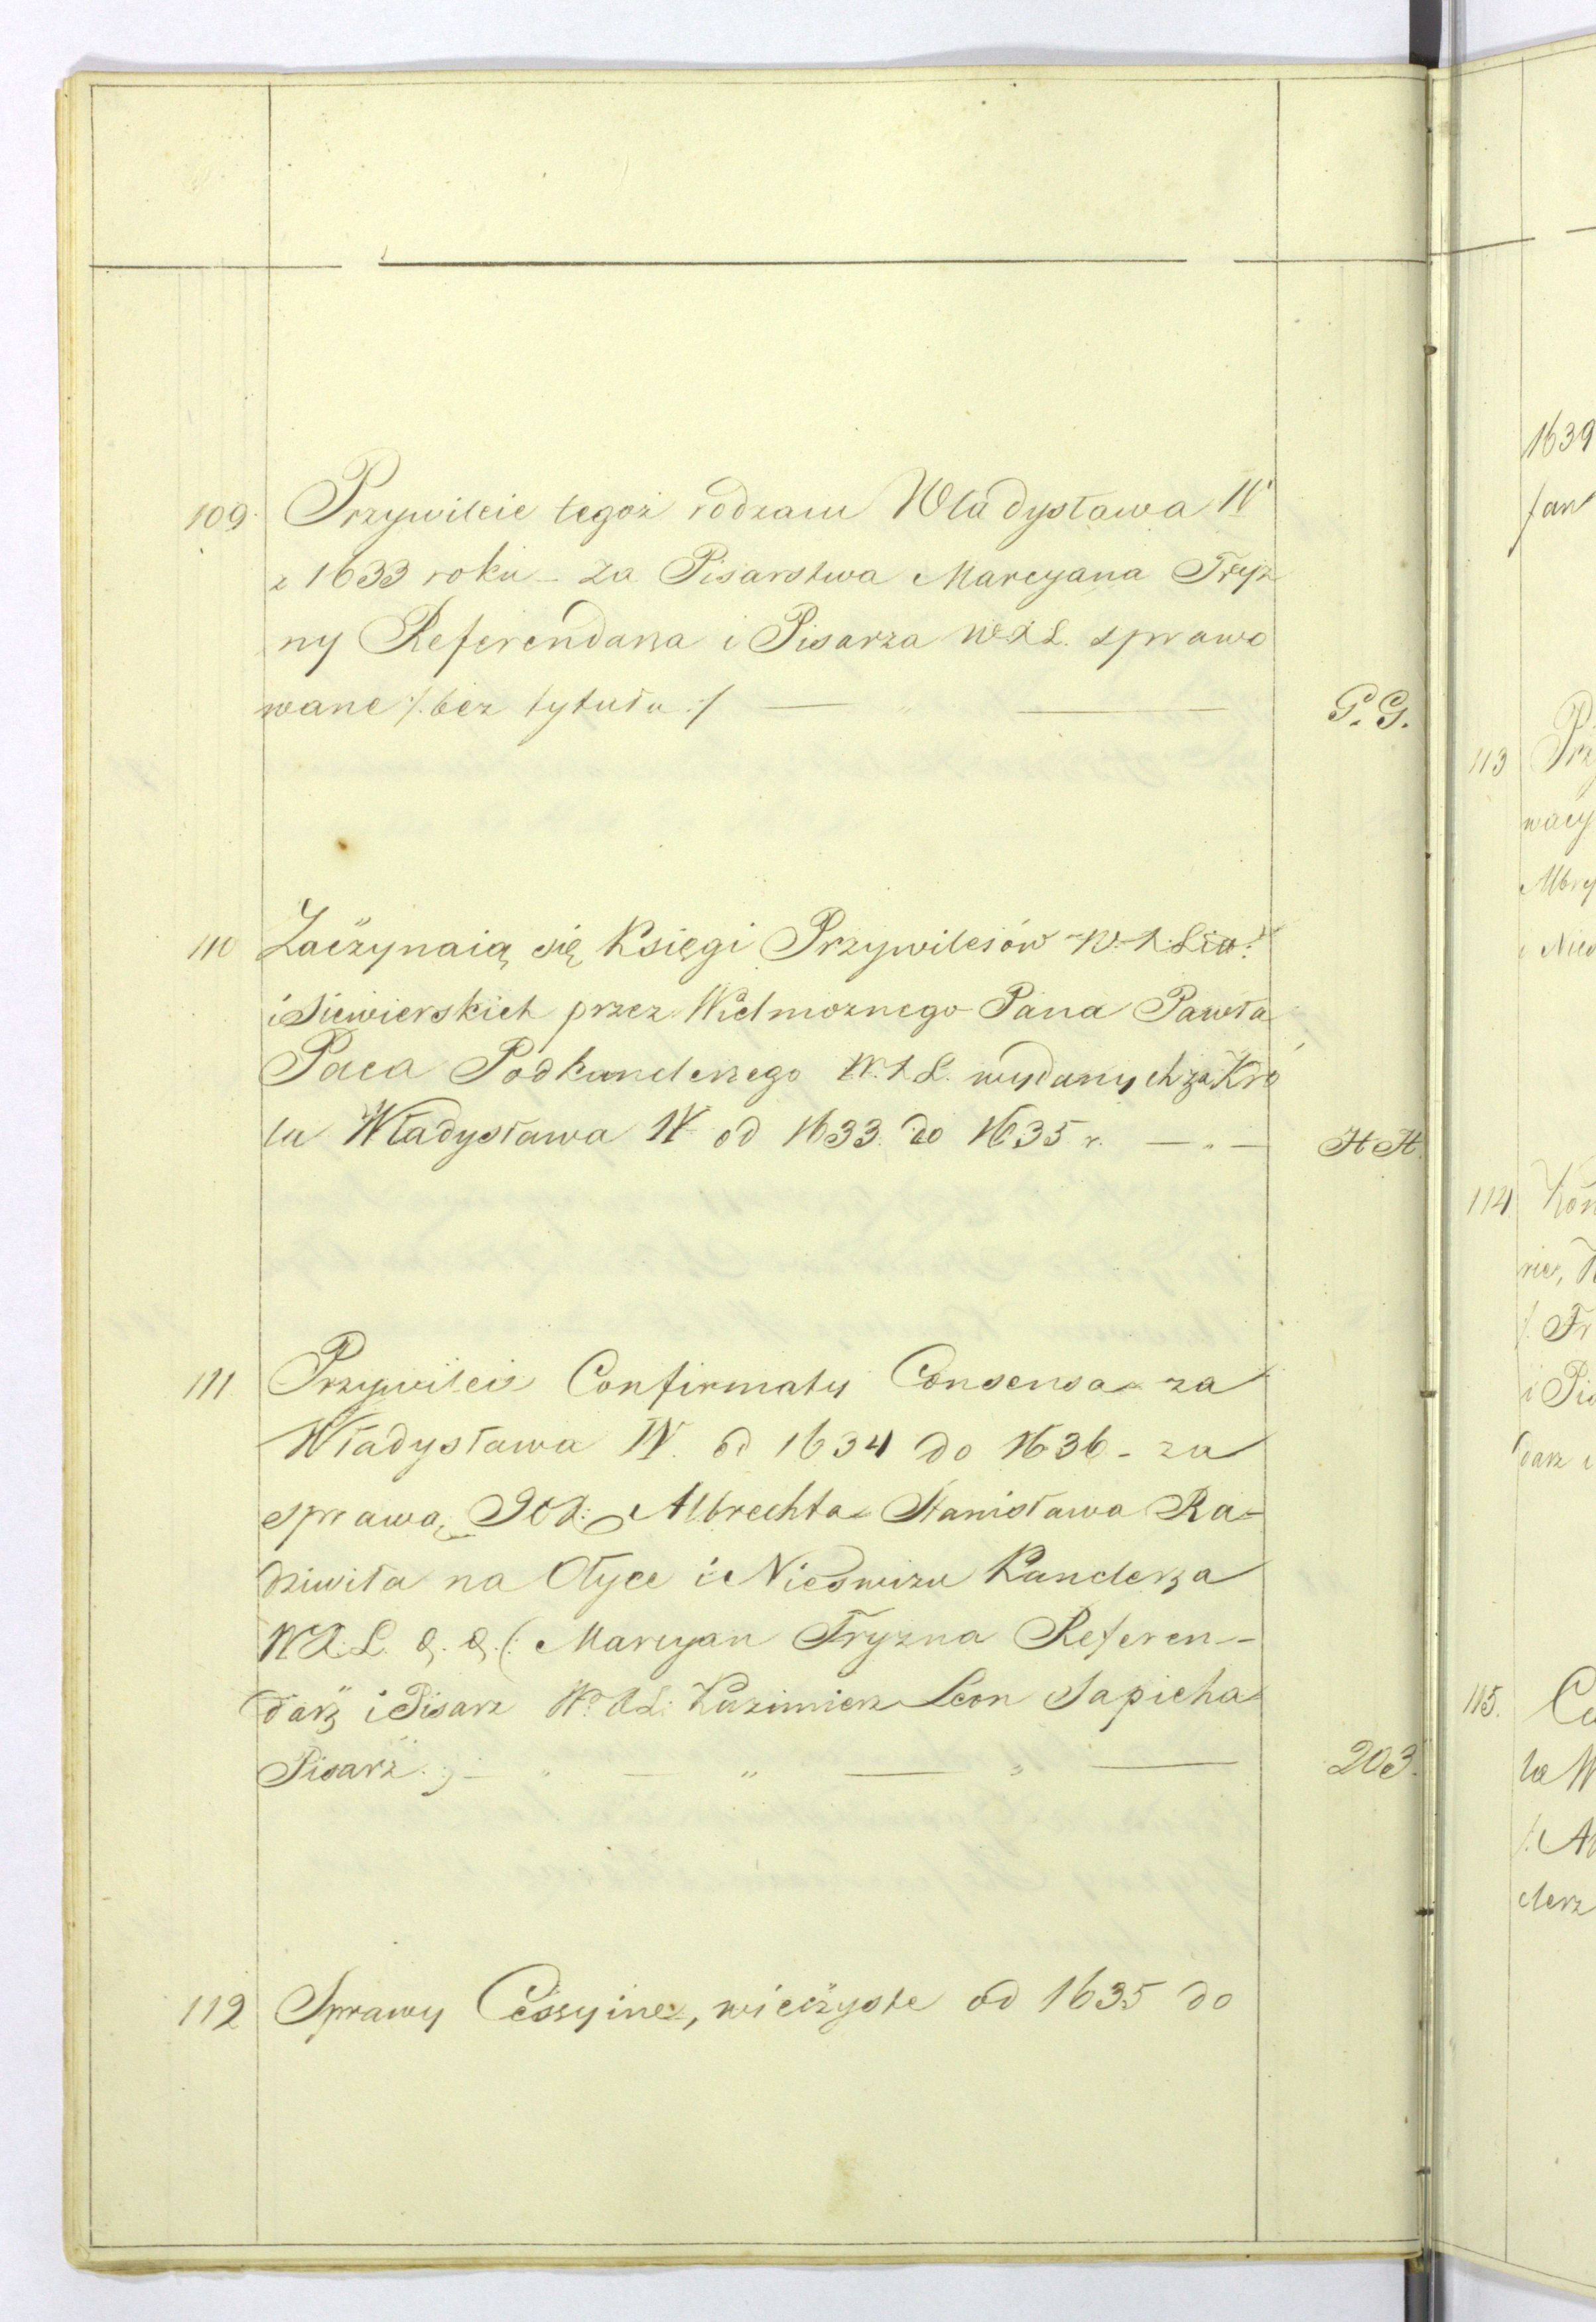 109. Przywileie tegoż rodzaiu Władysława IV
z 1633 roku – za Pisarstwa Marcyana Tryz
ny Referendarza i Pisarza W.X.L. sprawo
wane /. bez tytułu ./ — „ — G. G.
110 Zaczynaią się Księgi Przywilejów W. X. Litt:
i Siewierskich przez Wielmożnego Pana Pawła
Paca Podkanclerzego W. X. L. wydanych za Kró
la Władysława IV od 1633. do 1635 r. — „ — H H.
111. Przywileie Confirmaty Consensa za
Władysława IV. od 1634 do 1636 – za
sprawą Albrechta Stanisława Ra-
dziwiła na Ołyce i Nieświżu Kanclerza
W X. L. &. &. (: Marcyan Tryzna Referen--
darz i Pisarz W. X L: Kazimierz Leon Sapieha
Pisarz :) — „ — „ — „ — 203.
112 Sprawy Cessyine, wieczyste od 1635 do
1639
113 Prz
wacy
Albry
i Nies
114. Kon
/. Tr
i Pis
darz i
115. Ce
la W
/. Al
clerz